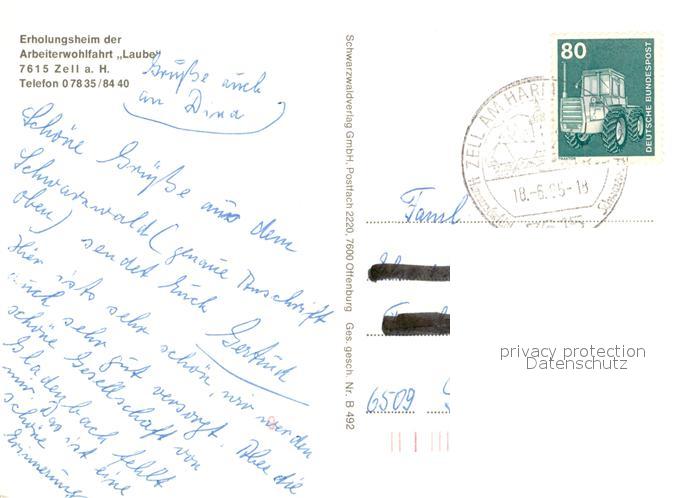 Erholungsheim der
Arbeiterwohlfahrt „Laube“
7615 Zell a. H.
Telefon 0 78 35 / 84 40
Grüße auch
an Dina
Schöne Grüße aus dem
Schwarzwald (genaue Anschrift
oben) sendet Euch Gertrud
Hier ists sehr schön, wir werden
auch sehr gut versorgt. Aber die
schöne Gesellschaft von
Gladenbach fehlt
mir. Das ist eine
schöne
Erinnerung
Schwarzwaldverlag GmbH, Postfach 2220, 7600 Offenburg Ges. gesch. Nr. B 492
80
DEUTSCHE BUNDESPOST
TRAKTOR
ZELL AM HAR
18.-6.
-18
Faml
6509
privacy protection
Datenschutz